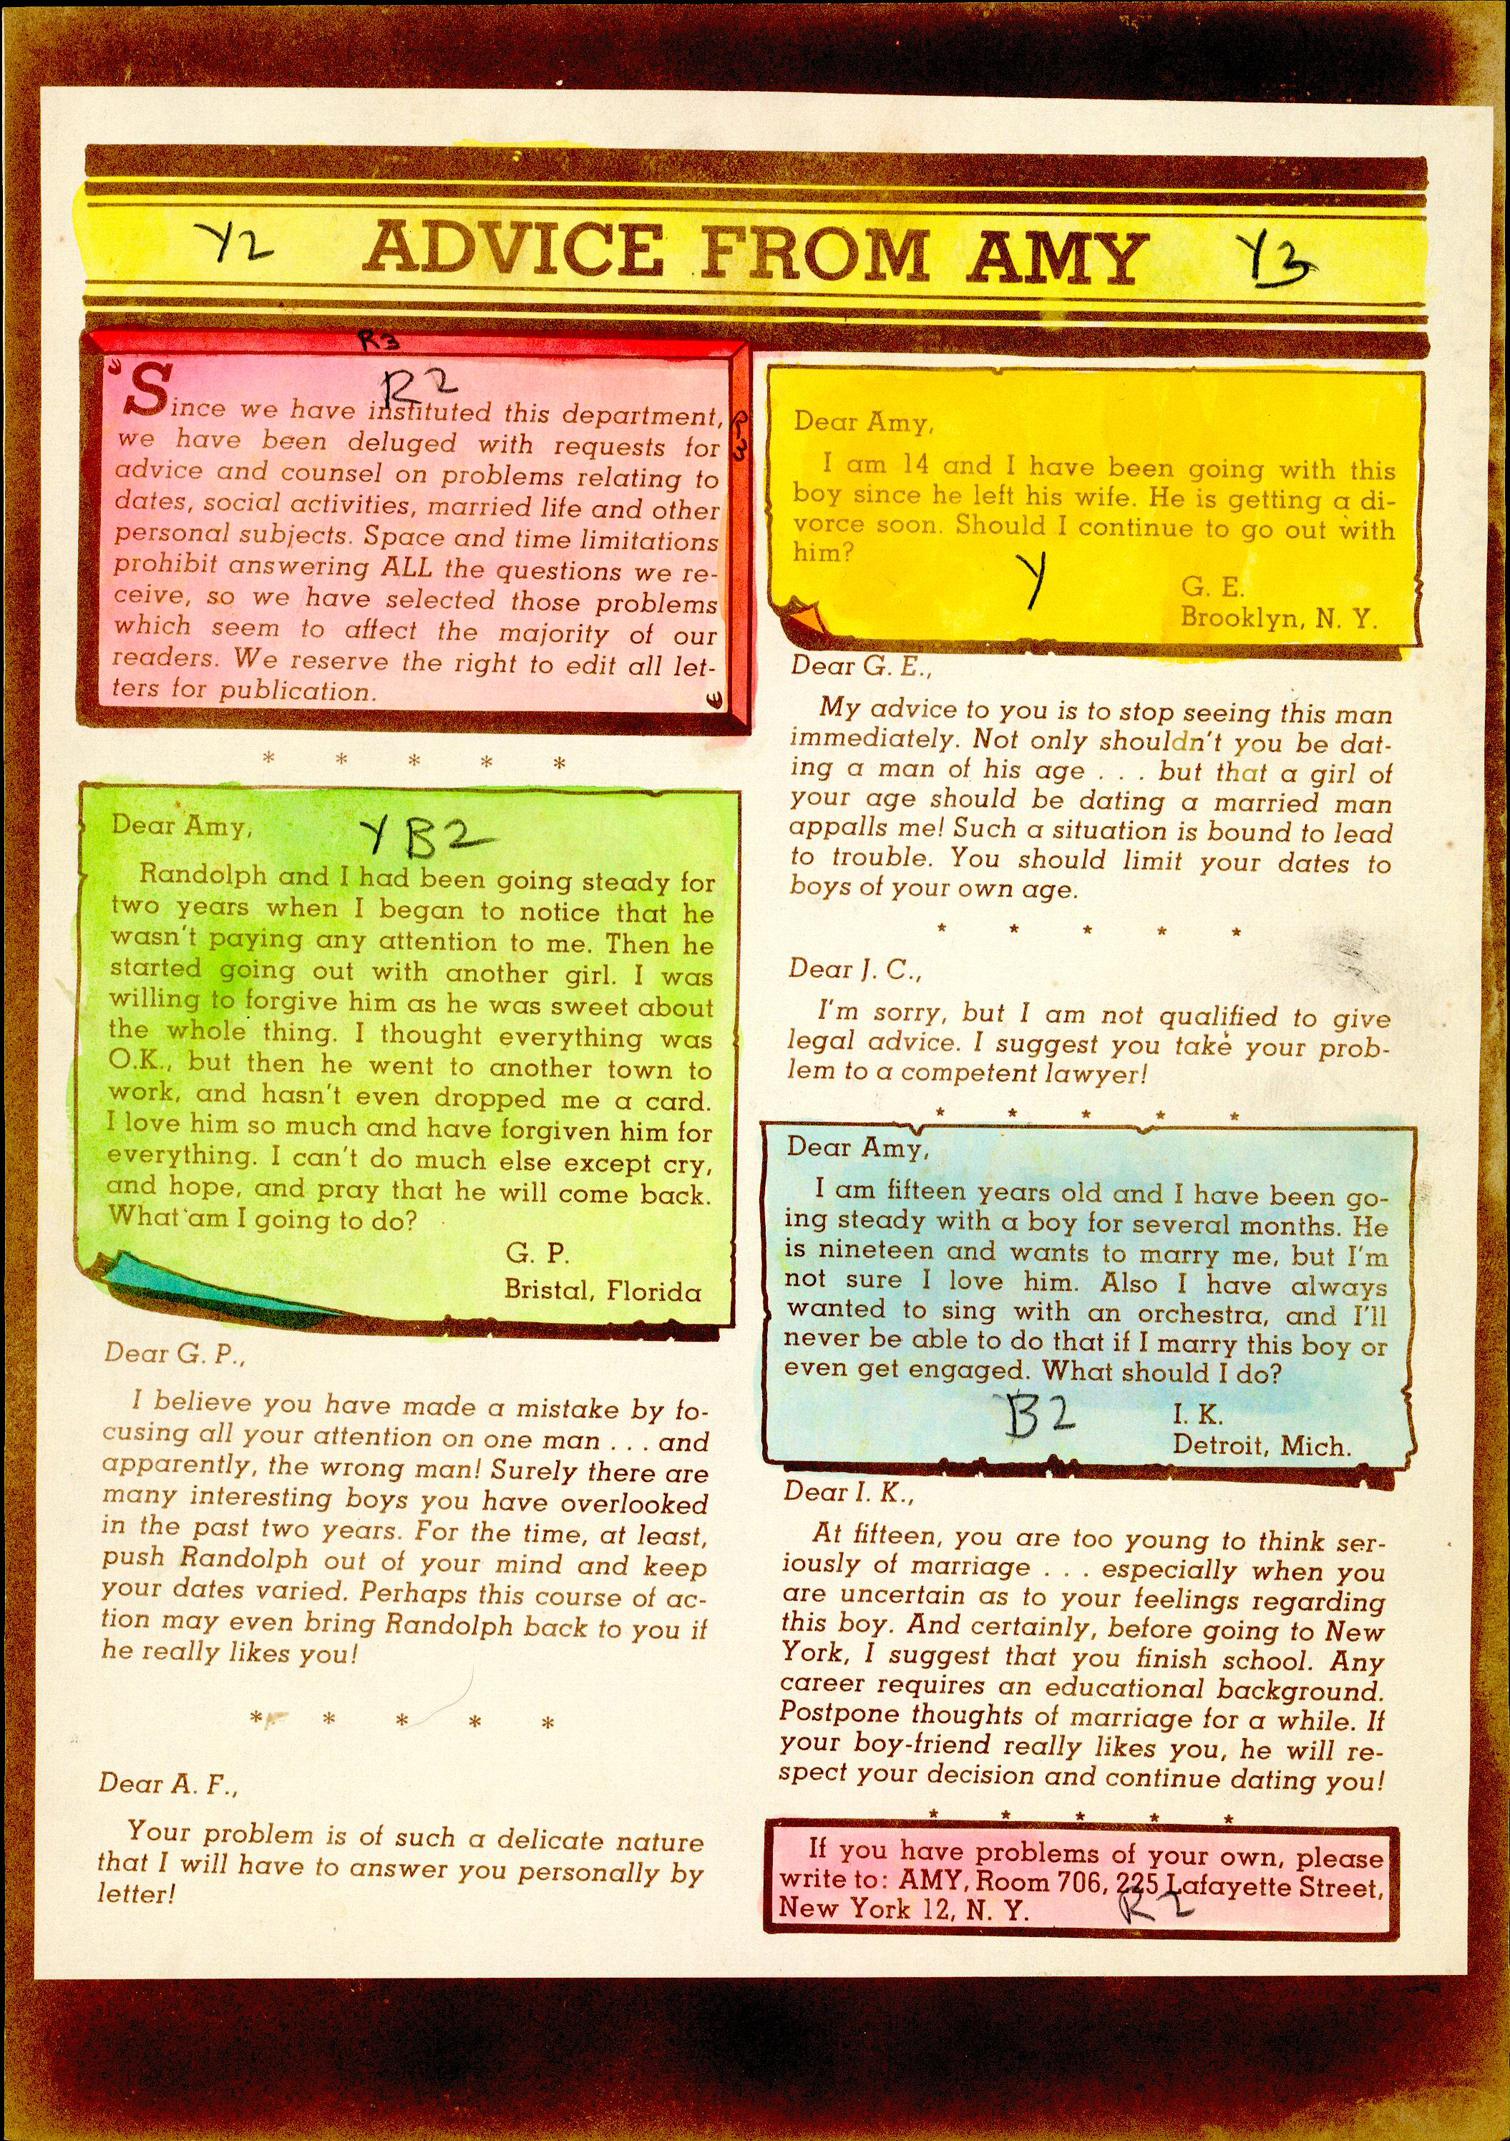 Y2 ADVICE FROM AMY Y3
R3
R2
R3
"Since we have instituted this department,
we have been deluged with requests for
advice and counsel on problems relating to
dates, social activities, married life and other
personal subjects. Space and time limitations
prohibit answering ALL the questions we re-
ceive, so we have selected those problems
which seem to affect the majority of our
readers. We reserve the right to edit all let-
ters for publication.
* * * * *
Dear Amy,
YB2
Randolph and I had been going steady for
two years when I began to notice that he
wasn't paying any attention to me. Then he
started going out with another girl. I was
willing to forgive him as he was sweet about
the whole thing. I thought everything was
O.K., but then he went to another town to
work, and hasn't even dropped me a card.
I love him so much and have forgiven him for
everything. I can't do much else except cry,
and hope, and pray that he will come back.
What am I going to do?
G. P.
Bristal, Florida
Dear G. P.,
I believe you have made a mistake by fo-
cusing all your attention on one man . . . and
apparently, the wrong man! Surely there are
many interesting boys you have overlooked
in the past two years. For the time, at least,
push Randolph out of your mind and keep
your dates varied. Perhaps this course of ac-
tion may even bring Randolph back to you if
he really likes you!
* * * * *
Dear A. F.,
Your problem is of such a delicate nature
that I will have to answer you personally by
letter!
Dear Amy,
I am 14 and I have been going with this
boy since he left his wife. He is getting a di-
vorce soon. Should I continue to go out with
him?
Y
G. E.
Brooklyn, N. Y.
Dear G. E.,
My advice to you is to stop seeing this man
immediately. Not only shouldn't you be dat-
ing a man of his age . . . but that a girl of
your age should be dating a married man
appalls me! Such a situation is bound to lead
to trouble. You should limit your dates to
boys of your own age.
* * * * *
Dear J. C.,
I'm sorry, but I am not qualified to give
legal advice. I suggest you take your prob-
lem to a competent lawyer!
* * * * *
Dear Amy,
I am fifteen years old and I have been go-
ing steady with a boy for several months. He
is nineteen and wants to marry me, but I'm
not sure I love him. Also I have always
wanted to sing with an orchestra, and I'll
never be able to do that if I marry this boy or
even get engaged. What should I do?
B2
I. K.
Detroit, Mich.
Dear I. K.,
At fifteen, you are too young to think ser-
iously of marriage . . . especially when you
are uncertain as to your feelings regarding
this boy. And certainly, before going to New
York, I suggest that you finish school. Any
career requires an educational background.
Postpone thoughts of marriage for a while. If
your boy-friend really likes you, he will re-
spect your decision and continue dating you!
* * * * *
If you have problems of your own, please
write to: AMY, Room 706, 225 Lafayette Street,
New York 12, N. Y.
R2